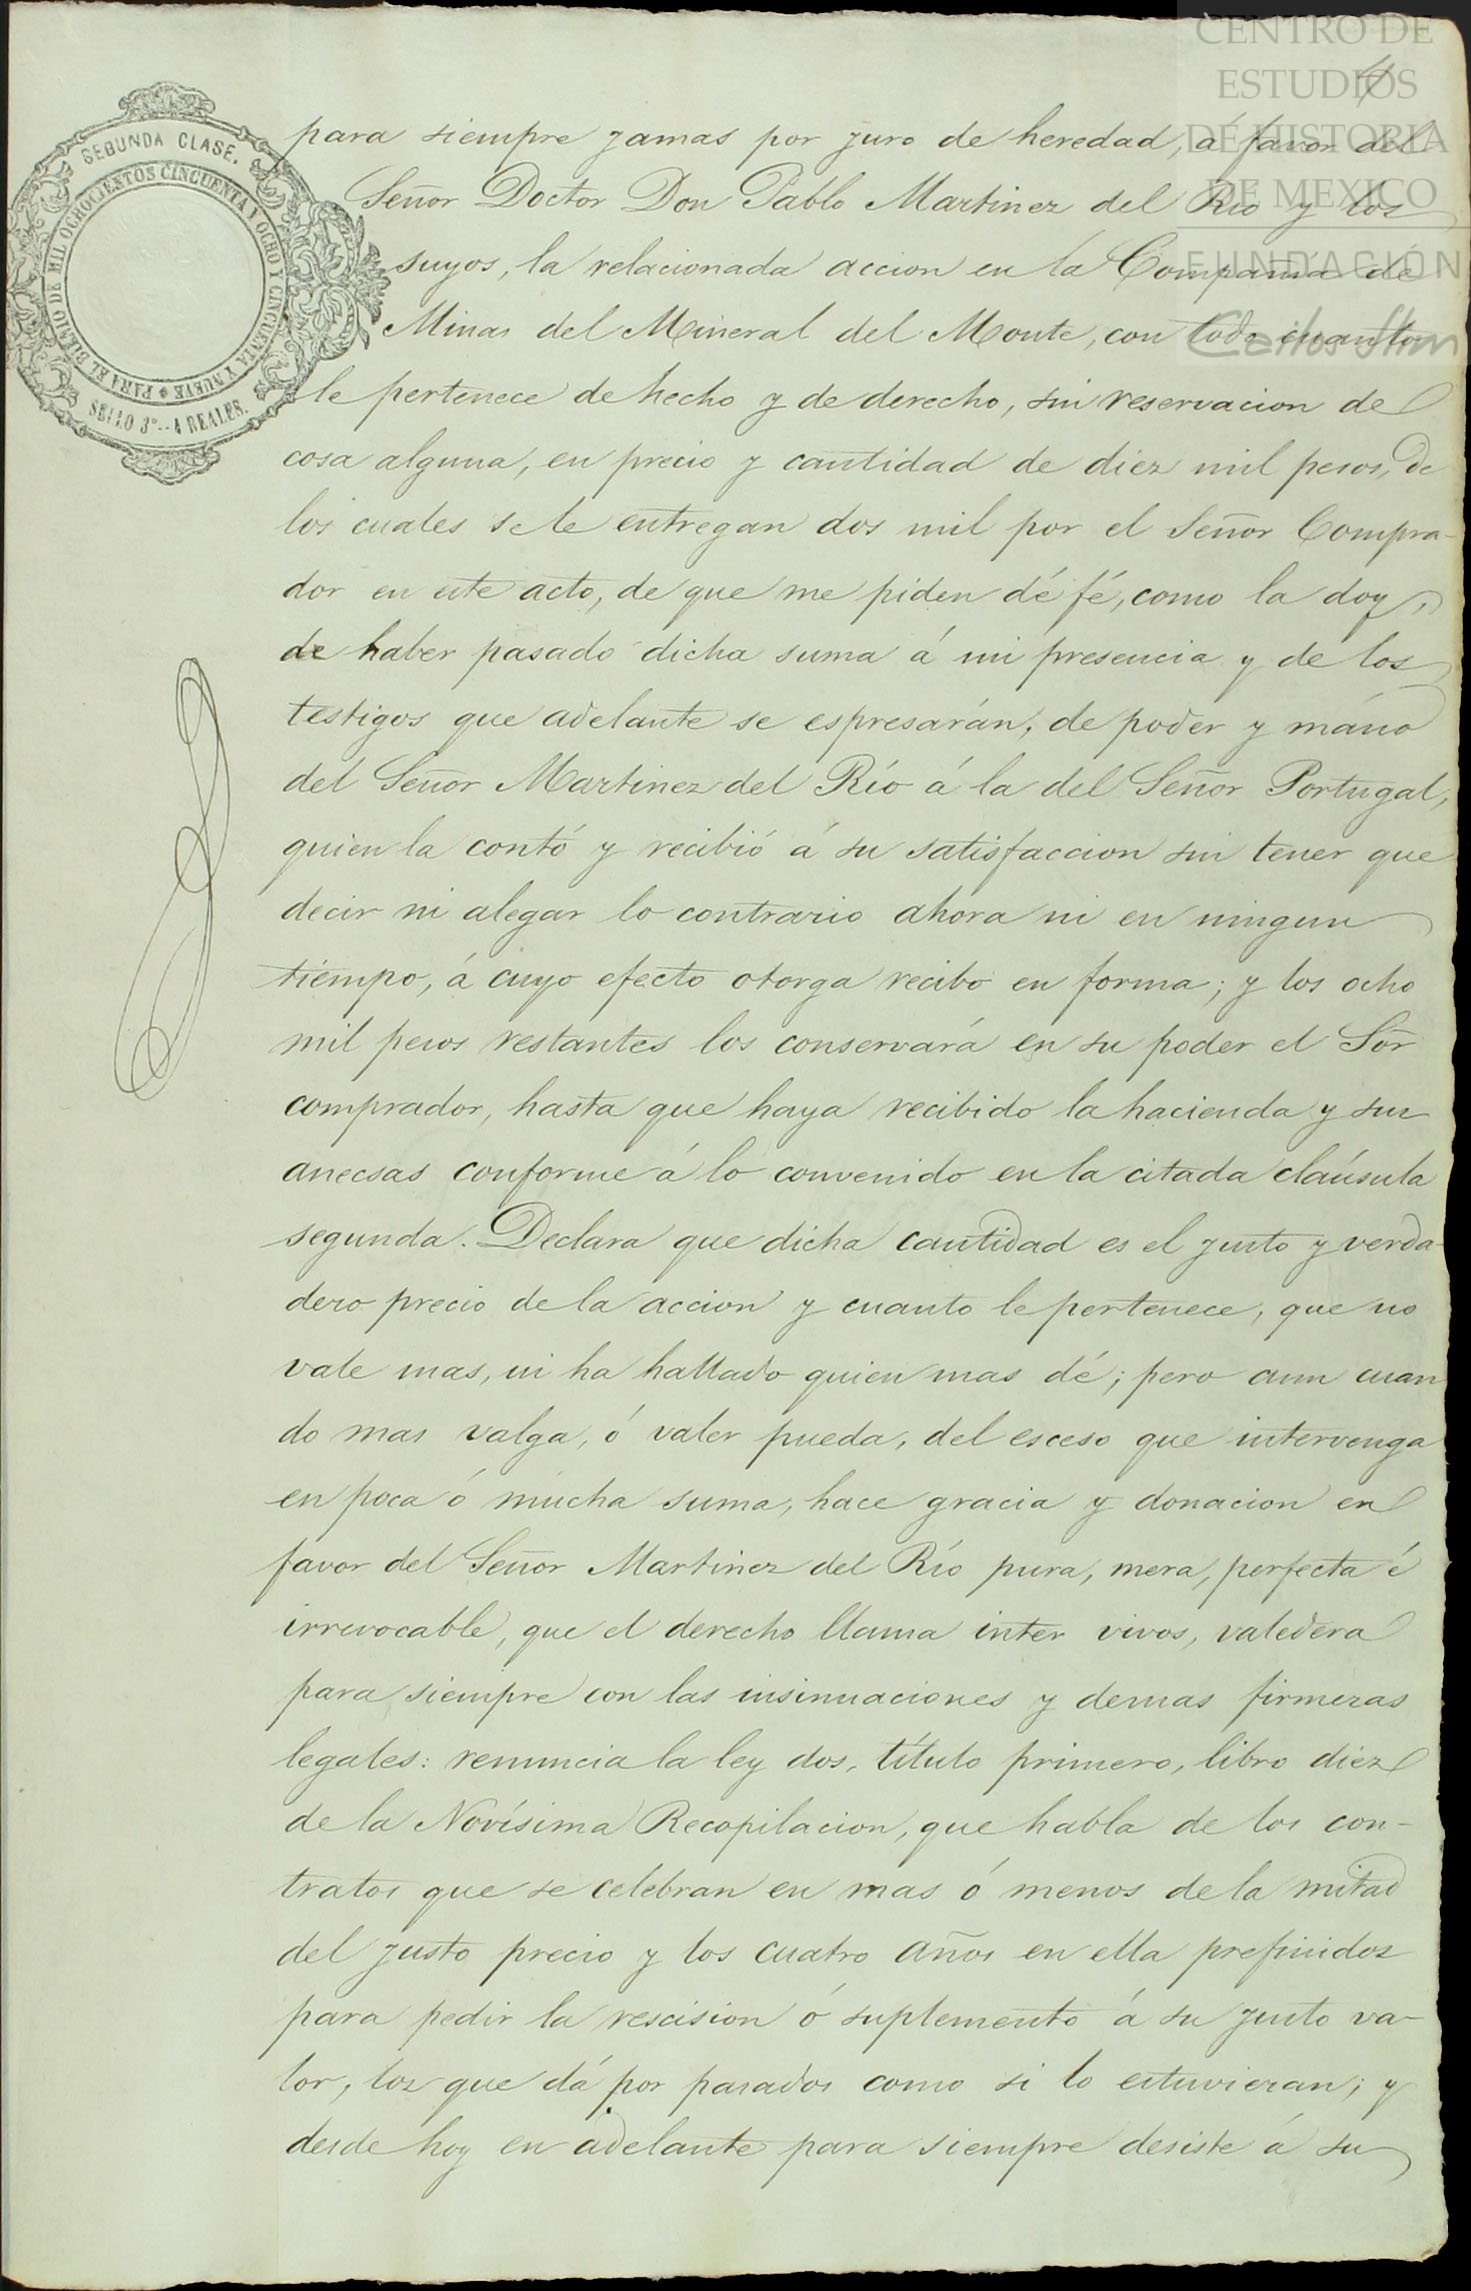 CENTRO DE
ESTUDIOS
DE HISTORIA
DE MEXICO
FUNDACIÓN
Carlos Slim
4
SEGUNDA CLASE.
PARA EL BIENIO DE MIL OCHOCIENTOS CINCUENTA Y OCHO Y CINCUENTA Y NUEVE
SELLO 3º.-4 REALES.
para siempre jamas por juro de heredad, á favor del
Señor Doctor Don Pablo Martinez del Rio y los
suyos, la relacionada accion en la Compañía de
Minas del Mineral del Monte, con todo cuanto
le pertenece de hecho y de derecho, sin reservacion de
cosa alguna, en precio y cantidad de diez mil pesos, de
los cuales se le entregan dos mil por el Señor Compra-
dor en este acto, de que me piden dé fé, como la doy,
de haber pasado dicha suma á mi presencia y de los
testigos que adelante se espresarán, de poder y mano
del Señor Martinez del Río á la del Señor Portugal,
quien la contó y recibió á su satisfaccion sin tener que
decir ni alegar lo contrario ahora ni en ningun
tiempo, á cuyo efecto otorga recibo en forma; y los ocho
mil pesos restantes los conservará en su poder el Sōr
comprador, hasta que haya recibido la hacienda y sus
anecsas conforme á lo convenido en la citada claúsula
segunda. Declara que dicha cantidad es el justo y verda-
dero precio de la accion y cuanto le pertenece, que no
vale mas, ni ha hallado quien mas dé; pero aun cuan
do mas valga, ó valer pueda, del esceso que intervenga
en poca ó mucha suma, hace gracia y donacion en
favor del Señor Martinez del Río pura, mera, perfecta é
irrevocable, que el derecho llama inter vivos, valedera
para siempre con las insinuaciones y demas firmezas
legales: renuncia la ley dos, título primero, libro diez
de la Novísima Recopilacion, que habla de los con-
tratos que se celebran en mas ó menos de la mitad
del justo precio y los cuatro años en ella prefinidos
para pedir la rescision ó suplemento á su justo va-
lor, los que dá por pasados como si lo estuvieran; y
desde hoy en adelante para siempre desiste á su